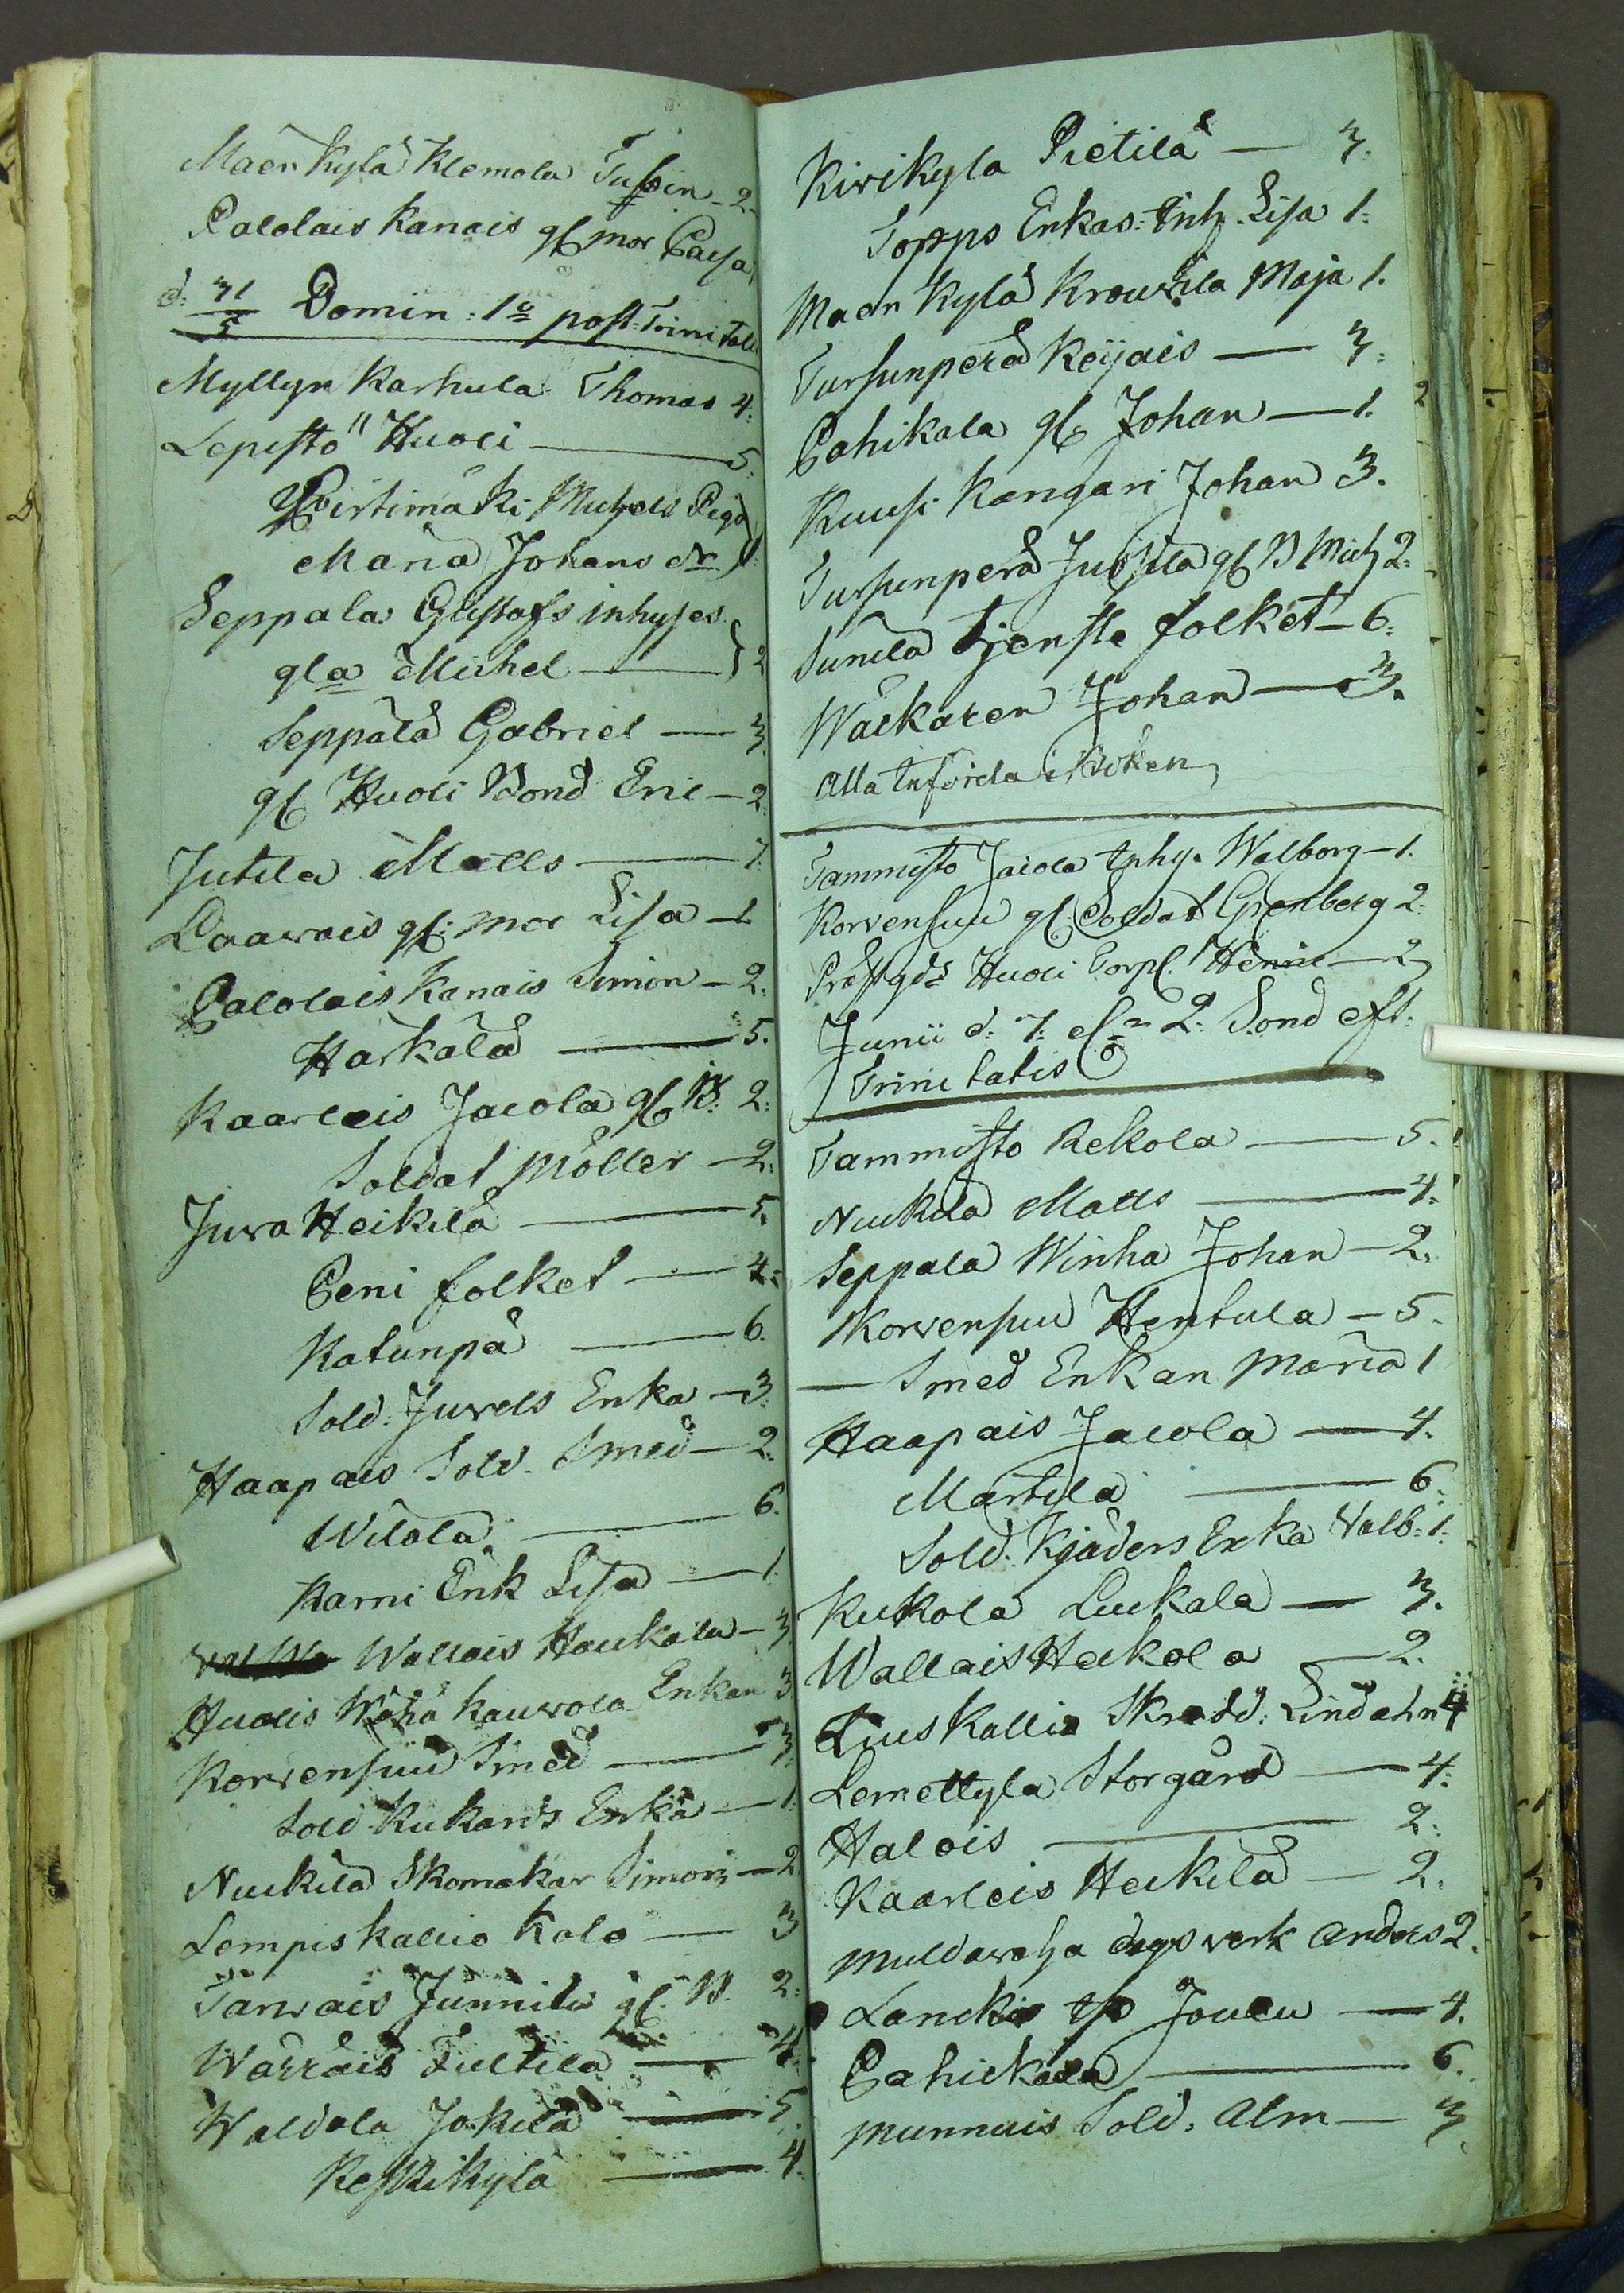 Maen kylä Klemola Tussin - 2
Palolais Kanais gl mor Caisa
d: 31/5 Domin: 1a post Trinitat
Myllyn Karhula Thomas 4:
Lepistö Huoli — 5.
Pirtimäki Michels Piga
Maria Johans dr 1:
Seppala Gustafs inhyses
gla Michel — 2
Seppälä Gabriel — 3.
gl Huoli Bond Eric — 2.
Jutila Matts — 7.
Laawais gl: mor Lisa — 1
Palolais Kanais Simon — 2:
Harkälä — 5.
Kaarlais Jacola gl B: 2:
Soldat Möller — 2:
Juva Heikilä — 5.
Peni folket — 4:
Katunpä — 6.
Sold: Juvels Enka — 3:
Haapais Sold. Smed — 2.
Wilola — 6.
Karni Enk Lisa — 1.
Wallais Haukala — 3.
Huolis Wähä Kauwola Enkan 3
Korvensuu Smed — 3.
Sold Kukands Enka — 1:
Nuckila Skomakar Simon — 2
Lempiskallio Kalo — 3
Tarwais Junnila gl: B. 2:
Wärräis Tultila — 4.
Waldola Jokila — 5.
Keskikylä — 4.
Kirikyla Pietilä — 3.
Torpps Enkas: inh. Lisa 1:
Maen kylä Krouwila Maja 1.
Tursunperä Keijais — 3:
Pahikala gl Johan — 1.
2
Kuusi Kangari Johan 3.
Tursunperä Jussila gl B Mich 2:
Sunila tjenste folket — 6:
Wäckären Johan — 3.
Alla införda i Boken
Tammisto Jacola inhy. Walborg — 1.
Korvensuu gl Soldat Grenberg 2:
Prästgds Huoli Torp. Henric — 2
Junii d: 7: el 2: Sond eft:
Trinitatis
Tammisto Rekola — 5.
Nuckila Matts — 4:
Seppala Winha Johan — 2.
Korvensuu Hentula — 5.
— Smed Enkan Maria 1
Haapais Jacola — 4.
Martyla — 6:
Sold. Kjäders Enka Valb: 1.
Kukola Luckala — 3.
Wallais Heckola — 2.
Liuskallio Skradd: Lindahn 4
Lemettyla Storgård — 4:
Halois — 2:
Kaarlais Heikilä — 2.
Muldawaha dags verk Anders 2.
Lancki Joucu — 4.
Pahickala — 6.
Munnuis Sold: Alm — 3.